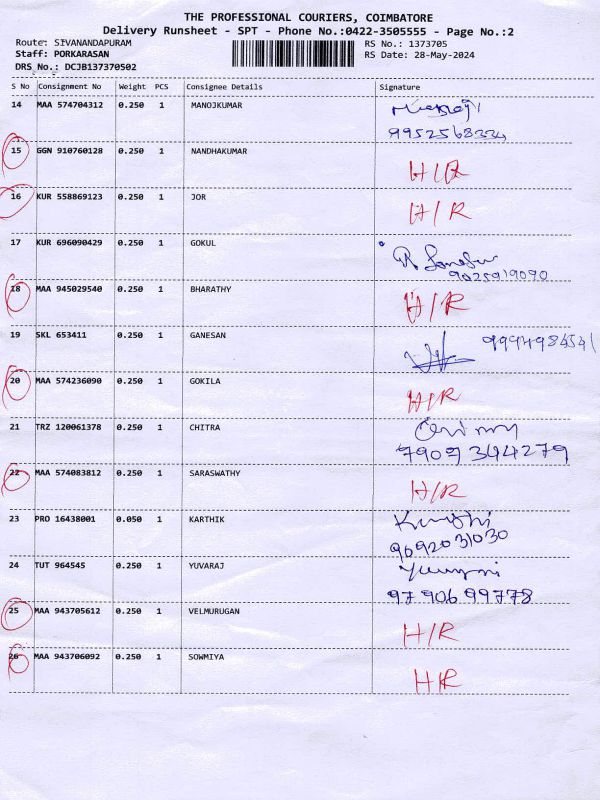 THE PROFESSIONAL COURIERS, COIMBATORE
Delivery Runsheet - SPT - Phone No.:0422-3505555 - Page No.:2
Route: SIVANANDAPURAM RS No.: 1373705
Staff: PORKARASAN RS Date: 28-May-2024
DRS No.: DCJB137370502
S No Consignment No Weight PCS Consignee Details Signature
14 MAA 574704312 0.250 1 MANOJKUMAR
15 GGN 910760128 0.250 1 NANDHAKUMAR H/R
16 KUR 558869123 0.250 1 JOR H/R
17 KUR 696090429 0.250 1 GOKUL
9025919090
18 MAA 945029540 0.250 1 BHARATHY H/R
19 SKL 653411 0.250 1 GANESAN 9994984541
20 MAA 574236090 0.250 1 GOKILA H/R
21 TRZ 120061378 0.250 1 CHITRA
7909344279
22 MAA 574083812 0.250 1 SARASWATHY H/R
23 PRO 16438001 0.050 1 KARTHIK
9092031030
24 TUT 964545 0.250 1 YUVARAJ
9790699778
25 MAA 943705612 0.250 1 VELMURUGAN H/R
26 MAA 943706092 0.250 1 SOWMIYA H/R